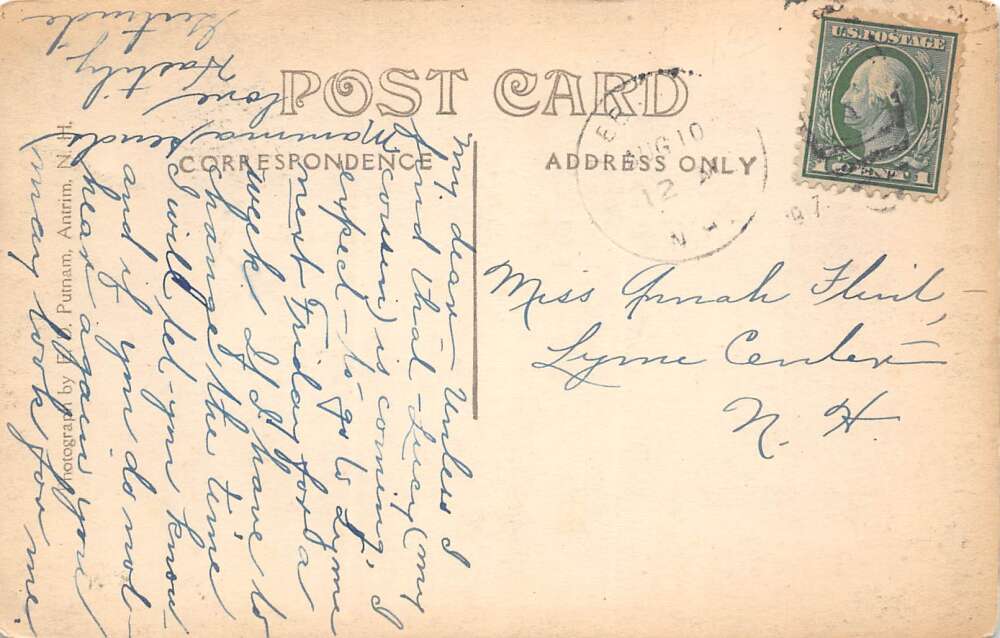 POST CARD
CORRESPONDENCE
ADDRESS ONLY
U.S. POSTAGE
1 CENT 1
AUG 10
12
N.H.
My dear - Unless I
find that - Lucy (my
cousin) is coming, I
expect - to go to Lyme
next Friday for a
week. If I have to
change the time
I will let - you know
and if you do not
hear again you
may look for me.
Mamma sends
love
Hastily
Gertrude
Miss Annah Flint,
Lyme Center
N. H.
Photograph by Putnam, Antrim, N. H.